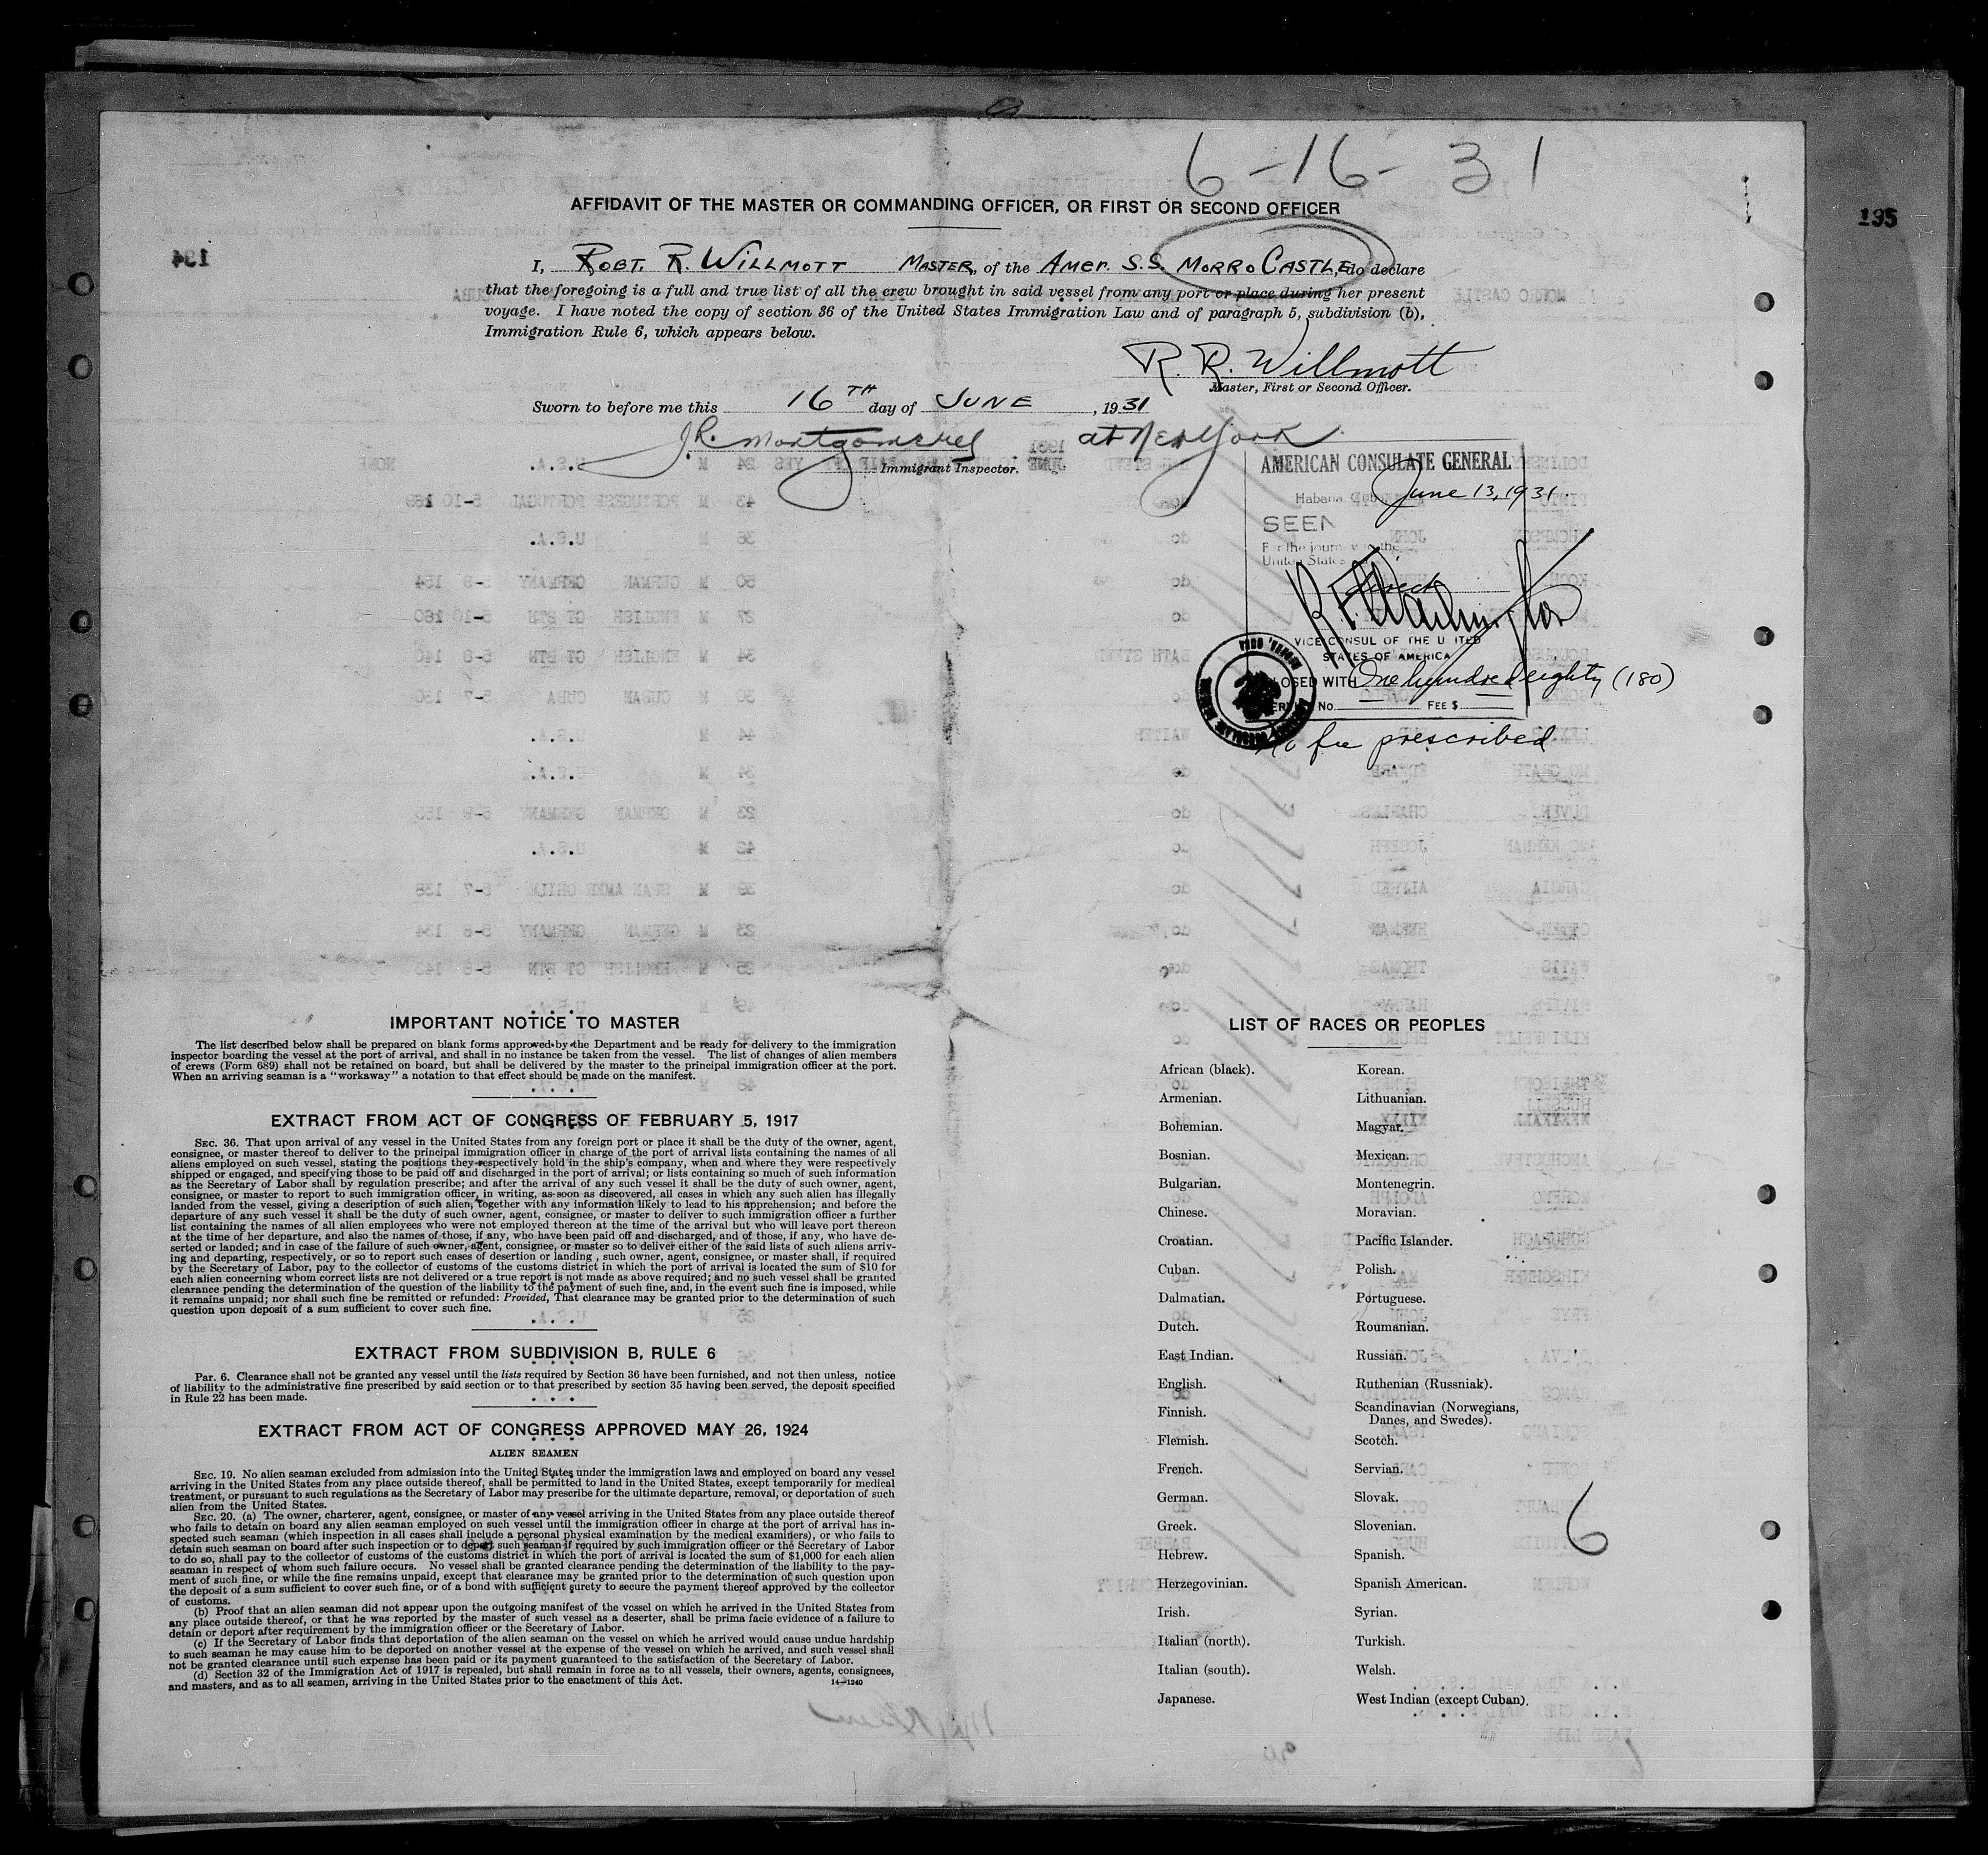 6-16-31
AFFIDAVIT OF THE MASTER OR COMMANDING OFFICER, OR FIRST OR SECOND OFFICER
195
194
I, ROBT. R. WILLMOTT MASTER, of the AMER. S.S. MORRO CASTLE, do declare
that the foregoing is a full and true list of all the crew brought in said vessel from any port or place during her present
voyage. I have noted the copy of section 36 of the United States Immigration Law and of paragraph 5, subdivision (b),
Immigration Rule 6, which appears below.
R. R. Willmott
Master, First or Second Officer.
Sworn to before me this 16TH day of JUNE, 1931
at New York
Immigrant Inspector.
AMERICAN CONSULATE GENERAL
Habana Cuba June 13, 1931.
SEEN
For the journey to the
United States
VICE CONSUL OF THE UNITED
STATES OF AMERICA
CLOSED WITH One hundred eighty (180)
SERVICE No. FEE $
No fee prescribed
IMPORTANT NOTICE TO MASTER
The list described below shall be prepared on blank forms approved by the Department and be ready for delivery to the immigration
inspector boarding the vessel at the port of arrival, and shall in no instance be taken from the vessel. The list of changes of alien members
of crews (Form 689) shall not be retained on board, but shall be delivered by the master to the principal immigration officer at the port.
When an arriving seaman is a "workaway" a notation to that effect should be made on the manifest.
EXTRACT FROM ACT OF CONGRESS OF FEBRUARY 5, 1917
SEC. 36. That upon arrival of any vessel in the United States from any foreign port or place it shall be the duty of the owner, agent,
consignee, or master thereof to deliver to the principal immigration officer in charge of the port of arrival lists containing the names of all
aliens employed on such vessel, stating the positions they respectively hold in the ship's company, when and where they were respectively
shipped or engaged, and specifying those to be paid off and discharged in the port of arrival; or lists containing so much of such information
as the Secretary of Labor shall by regulation prescribe; and after the arrival of any such vessel it shall be the duty of such owner, agent,
consignee, or master to report to such immigration officer, in writing, as soon as discovered, all cases in which any such alien has illegally
landed from the vessel, giving a description of such alien, together with any information likely to lead to his apprehension; and before the
departure of any such vessel it shall be the duty of such owner, agent, consignee, or master to deliver to such immigration officer a further
list containing the names of all alien employees who were not employed thereon at the time of the arrival but who will leave port thereon
at the time of her departure, and also the names of those, if any, who have been paid off and discharged, and of those, if any, who have de-
serted or landed; and in case of the failure of such owner, agent, consignee, or master so to deliver either of the said lists of such aliens arriv-
ing and departing, respectively, or so to report such cases of desertion or landing , such owner, agent, consignee, or master shall, if required
by the Secretary of Labor, pay to the collector of customs of the customs district in which the port of arrival is located the sum of $10 for
each alien concerning whom correct lists are not delivered or a true report is not made as above required; and no such vessel shall be granted
clearance pending the determination of the question of the liability to the payment of such fine, and, in the event such fine is imposed, while
it remains unpaid; nor shall such fine be remitted or refunded: Provided, That clearance may be granted prior to the determination of such
question upon deposit of a sum sufficient to cover such fine.
EXTRACT FROM SUBDIVISION B, RULE 6
Par. 6. Clearance shall not be granted any vessel until the lists required by Section 36 have been furnished, and not then unless, notice
of liability to the administrative fine prescribed by said section or to that prescribed by section 35 having been served, the deposit specified
in Rule 22 has been made.
EXTRACT FROM ACT OF CONGRESS APPROVED MAY 26, 1924
ALIEN SEAMEN
SEC. 19. No alien seaman excluded from admission into the United States under the immigration laws and employed on board any vessel
arriving in the United States from any place outside thereof, shall be permitted to land in the United States, except temporarily for medical
treatment, or pursuant to such regulations as the Secretary of Labor may prescribe for the ultimate departure, removal, or deportation of such
alien from the United States.
SEC. 20. (a) The owner, charterer, agent, consignee, or master of any vessel arriving in the United States from any place outside thereof
who fails to detain on board any alien seaman employed on such vessel until the immigration officer in charge at the port of arrival has in-
spected such seaman (which inspection in all cases shall include a personal physical examination by the medical examiners), or who fails to
detain such seaman on board after such inspection or to deport such seaman if required by such immigration officer or the Secretary of Labor
to do so, shall pay to the collector of customs of the customs district in which the port of arrival is located the sum of $1,000 for each alien
seaman in respect of whom such failure occurs. No vessel shall be granted clearance pending the determination of the liability to the pay-
ment of such fine, or while the fine remains unpaid, except that clearance may be granted prior to the determination of such question upon
the deposit of a sum sufficient to cover such fine, or of a bond with sufficient surety to secure the payment thereof approved by the collector
of customs.
(b) Proof that an alien seaman did not appear upon the outgoing manifest of the vessel on which he arrived in the United States from
any place outside thereof, or that he was reported by the master of such vessel as a deserter, shall be prima facie evidence of a failure to
detain or deport after requirement by the immigration officer or the Secretary of Labor.
(c) If the Secretary of Labor finds that deportation of the alien seaman on the vessel on which he arrived would cause undue hardship
to such seaman he may cause him to be deported on another vessel at the expense of the vessel on which he arrived, and such vessel shall
not be granted clearance until such expense has been paid or its payment guaranteed to the satisfaction of the Secretary of Labor.
(d) Section 32 of the Immigration Act of 1917 is repealed, but shall remain in force as to all vessels, their owners, agents, consignees,
and masters, and as to all seamen, arriving in the United States prior to the enactment of this Act.
14—1240
LIST OF RACES OR PEOPLES
African (black).
Armenian.
Bohemian.
Bosnian.
Bulgarian.
Chinese.
Croatian.
Cuban.
Dalmatian.
Dutch.
East Indian.
English.
Finnish.
Flemish.
French.
German.
Greek.
Hebrew.
Herzegovinian.
Irish.
Italian (north).
Italian (south).
Japanese.
Korean.
Lithuanian.
Magyar.
Mexican.
Montenegrin.
Moravian.
Pacific Islander.
Polish.
Portuguese.
Roumanian.
Russian.
Ruthenian (Russniak).
Scandinavian (Norwegians,
Danes, and Swedes).
Scotch.
Servian.
Slovak.
Slovenian.
Spanish.
Spanish American.
Syrian.
Turkish.
Welsh.
West Indian (except Cuban).
6